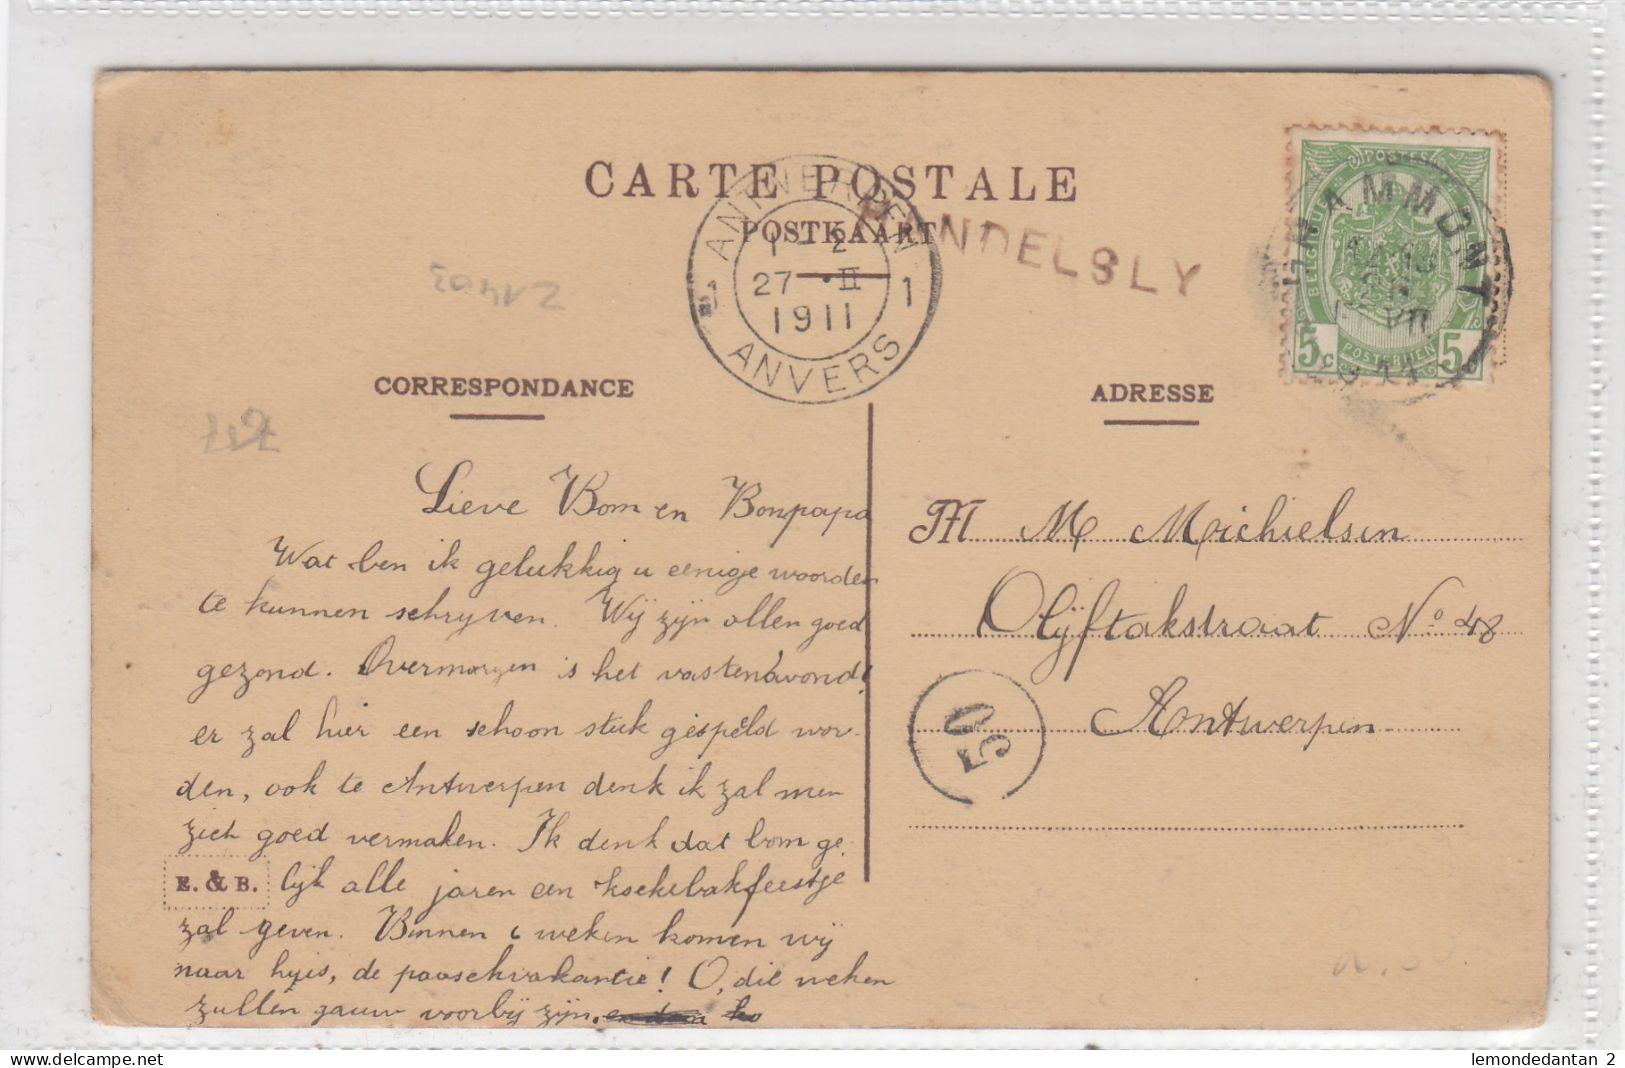 CARTE POSTALE
POSTKAART
ANTWERPEN
1 - 2
27 • II
1911
1 1
ANVERS
MANDELSLY
POSTES
BELGIQUE
5c 5c
POSTERIJEN
CORRESPONDANCE
ADRESSE
Lieve Bom en Bonpapa
Wat ben ik gelukkig u eenige woorden
te kunnen schryven. Wij zijn allen goed
gezond. Overmorgen is het vastenavond!
er zal hier een schoon stuk gespeld wor-
den, ook te Antwerpen denk ik zal men
zich goed vermaken. Ik denk dat bom ge-
E. & B. lijk alle jaren een koekebakfeestje
zal geven. Binnen 6 weken komen wij
naar huis, de paaschvakantie! O, die weken
zullen gauw voorbij zijn.
M M Michielsen
Olijftakstraat No 48
Antwerpen
30
lemondedantan 2